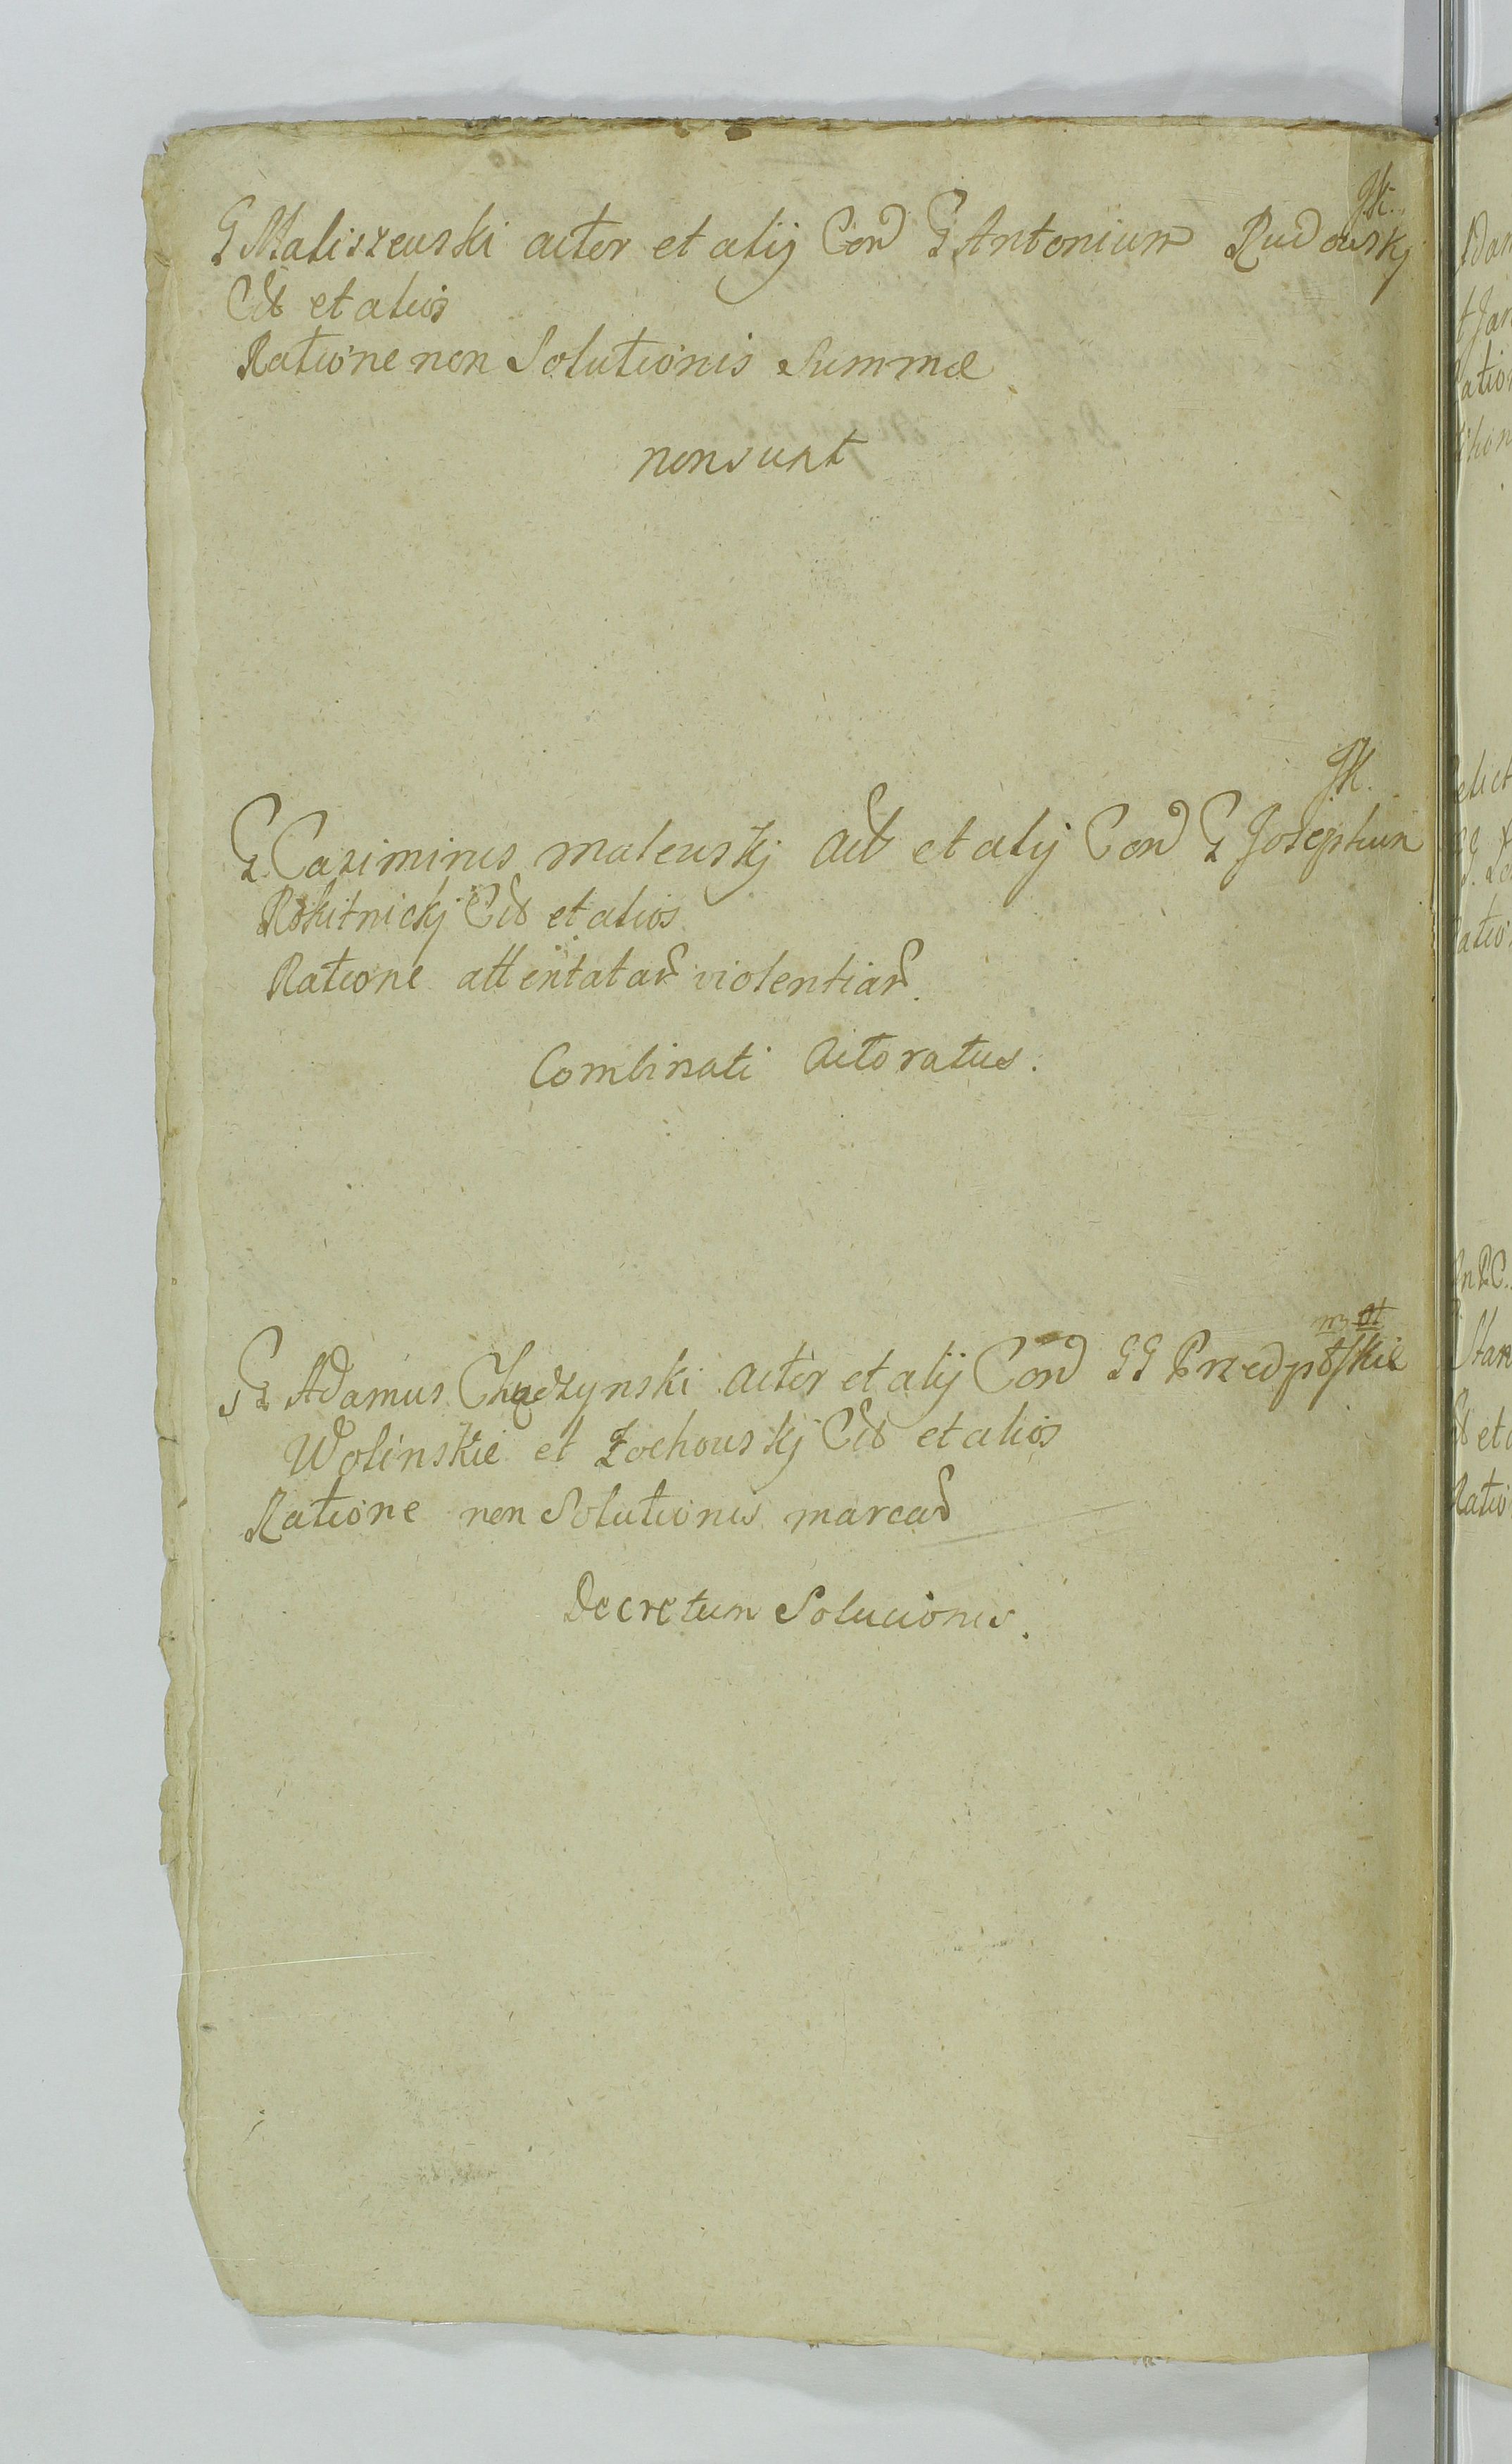 JK.
G Maliszewski actor et alij Con G Antonium Rudowskj
Cit et alios
Ratione non Solutionis Summæ
non sunt
JK.
G Casimirus Malewskj Act et alij Con G Josephum
Rokitnickj Cit et alios
Ratione attentatar violentiar.
Combinati Actoratus.
G Adamus Chądzynski Actor et alij Con GG
Wolinskie et Zochowskj Cit et alios
Ratione non Solutionis marcar
Decretum Solucionis.